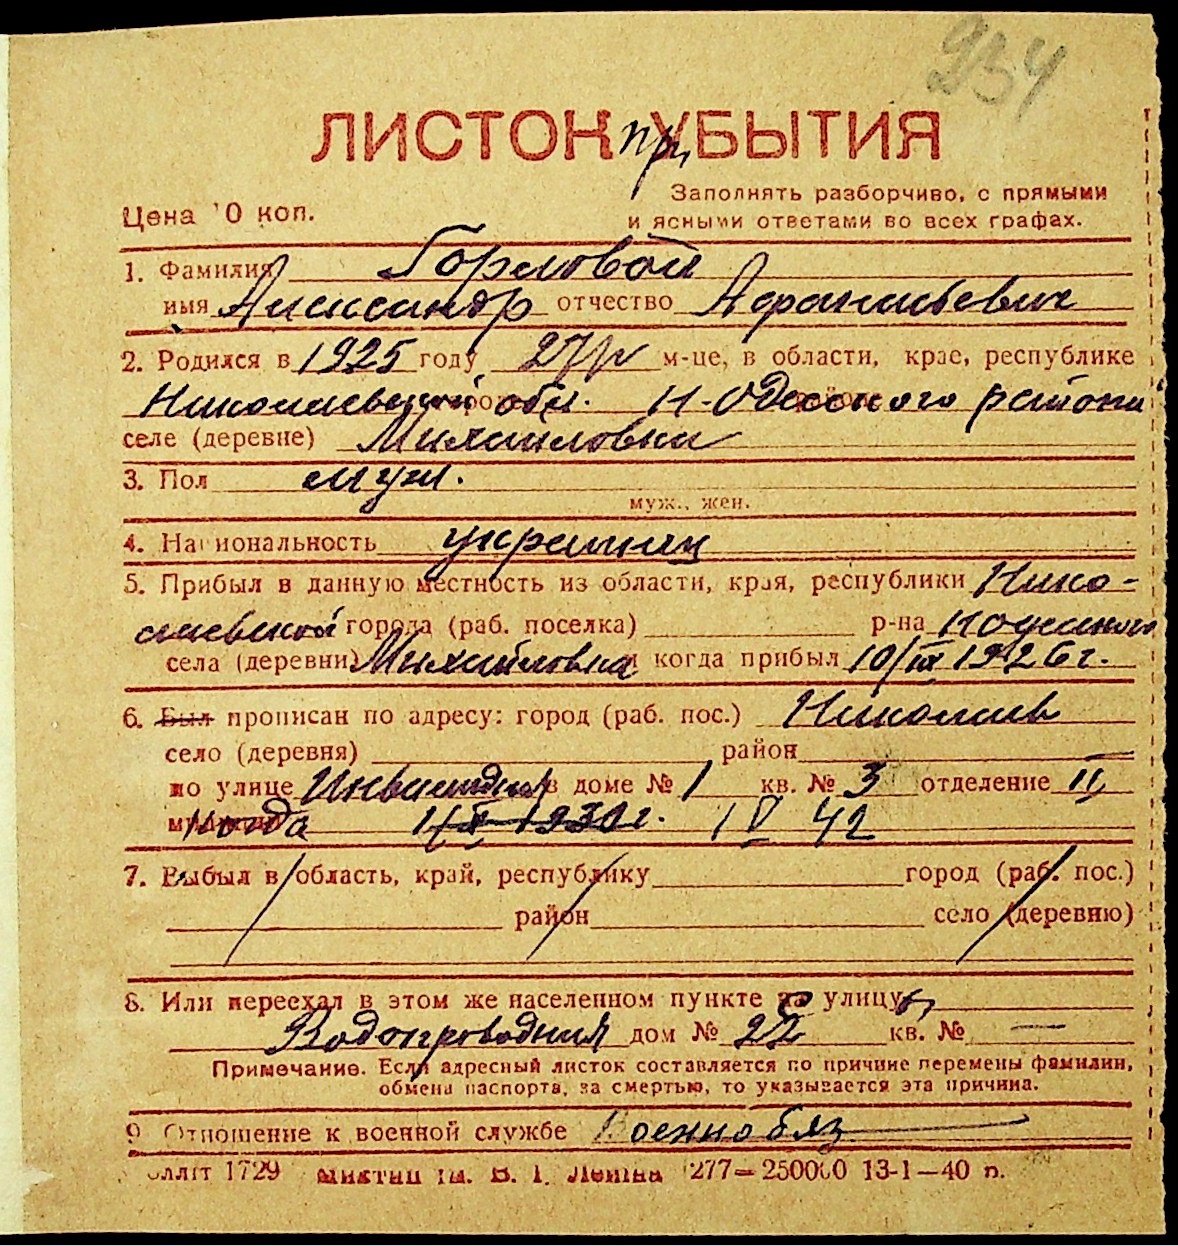 234
ЛИСТОК при УБЫТИЯ
Цена 10 коп.
Заполнять разборчиво, с прямыми
и ясными ответами во всех графах.
1. Фамилия Горловой
имя Александр отчество Афанасьевич
2. Родился в 1925 году 27/IV м-це, в области, крае, республике
Николаевской обл. Н-Одесского района
селе (деревне) Михайловка
3. Пол муж.
муж., жен.
4. Национальность украинец
5. Прибыл в данную местность из области, края, республики Нико-
лаевской города (раб. поселка) р-на Н Одесского
села (деревни) Михайловка и когда прибыл 10/IX 1926 г.
6. Был прописан по адресу: город (раб. пос.) Николаев
село (деревня) район
по улице Инвалидная в доме № 1 кв. № 3 отделение II
Когда 1930 г. IV 42
7. Выбыл в область, край, республику город (раб. пос.)
район село (деревню)
8. Или переехал в этом же населенном пункте улицу
Водопроводная дом № 22 кв. № —
Примечание. Если адресный листок составляется по причине перемены фамилии,
обмена паспорта, за смертью, то указывается эта причина.
9 Отношение к военной службе Военнобяз
1729 им. В. І. Леніна 277—250000 13-1—40 п.